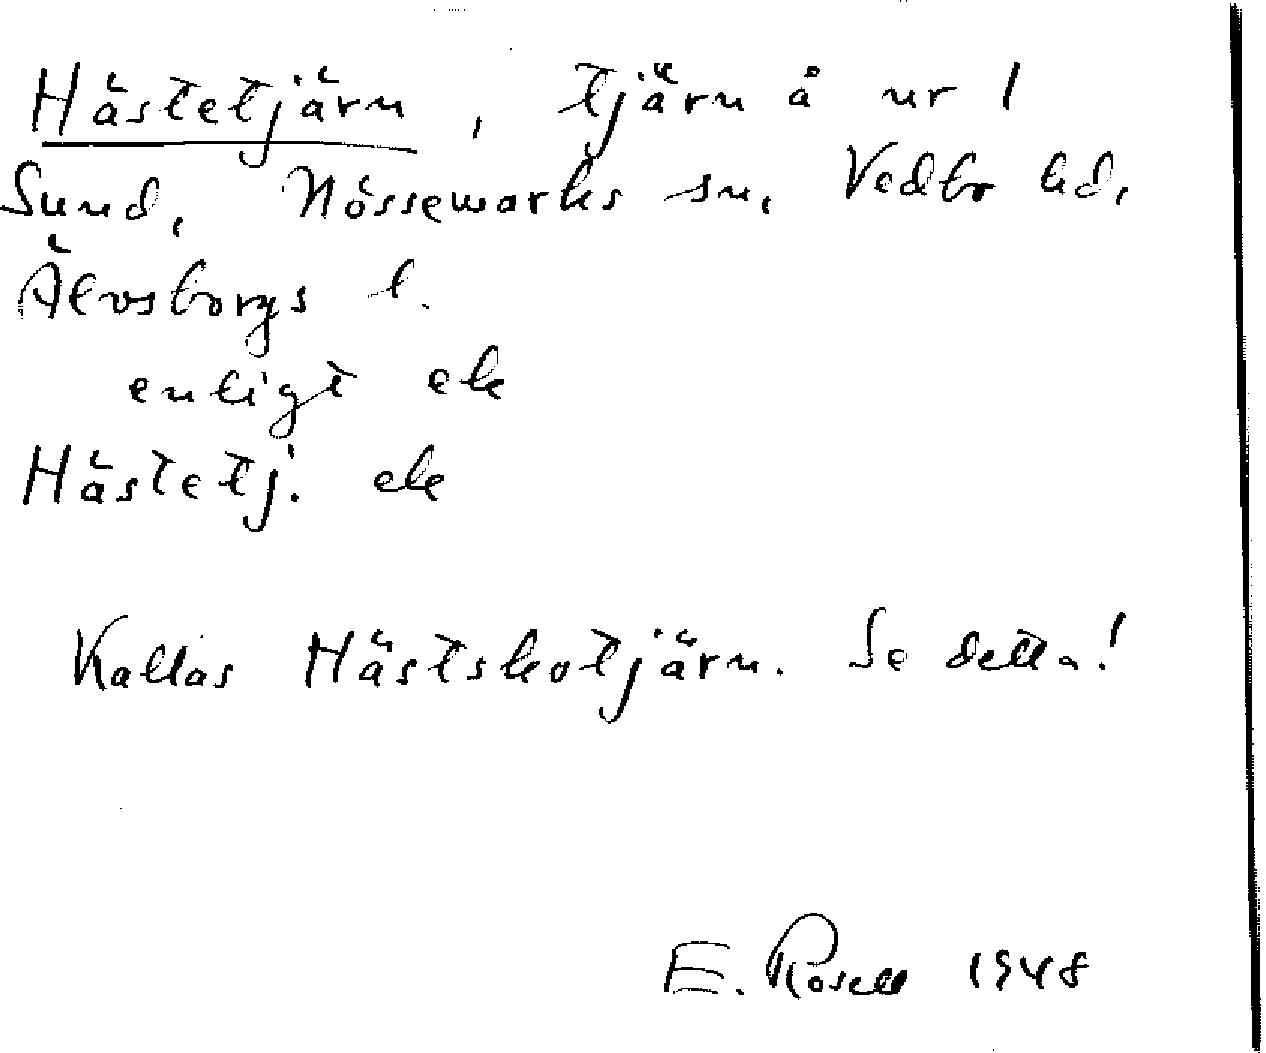 Hästetjärn, tjärn å nr 1
Sund, Nössemarks sn, Vedbo hd,
Älvsborgs l.
enligt ek
Hästetj. ek
Kallas Hästskotjärn. Se detta!
E. Rosell 1948